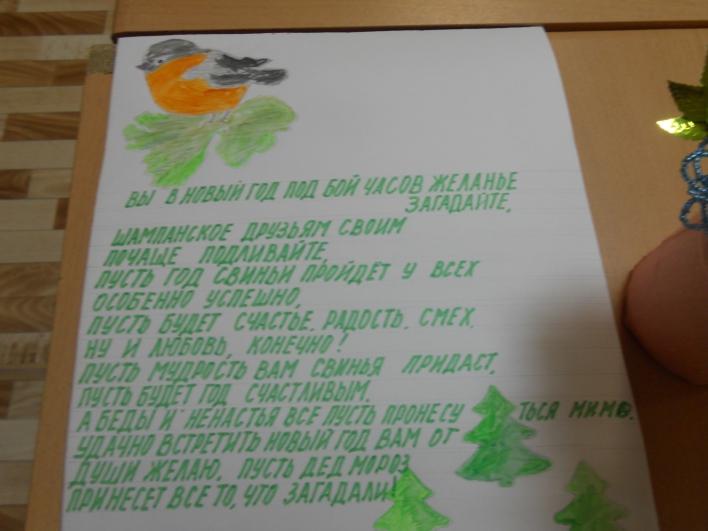 ВЫ В НОВЫЙ ГОД ПОД БОЙ ЧАСОВ ЖЕЛАНЬЕ
ЗАГАДАЙТЕ,
ШАМПАНСКОЕ ДРУЗЬЯМ СВОИМ
ПОЧАЩЕ ПОДЛИВАЙТЕ,
ПУСТЬ ГОД СВИНЬИ ПРОЙДЁТ У ВСЕХ
ОСОБЕННО УСПЕШНО,
ПУСТЬ БУДЕТ СЧАСТЬЕ, РАДОСТЬ, СМЕХ,
НУ И ЛЮБОВЬ, КОНЕЧНО!
ПУСТЬ МУДРОСТЬ ВАМ СВИНЬЯ ПРИДАСТ,
ПУСТЬ БУДЕТ ГОД СЧАСТЛИВЫМ,
А БЕДЫ И НЕНАСТЬЯ ВСЕ ПУСТЬ ПРОНЕСУТЬСЯ МИМО.
УДАЧНО ВСТРЕТИТЬ НОВЫЙ ГОД ВАМ ОТ
ДУШИ ЖЕЛАЮ, ПУСТЬ ДЕД МОРОЗ
ПРИНЕСЕТ ВСЕ ТО, ЧТО ЗАГАДАЛИ!